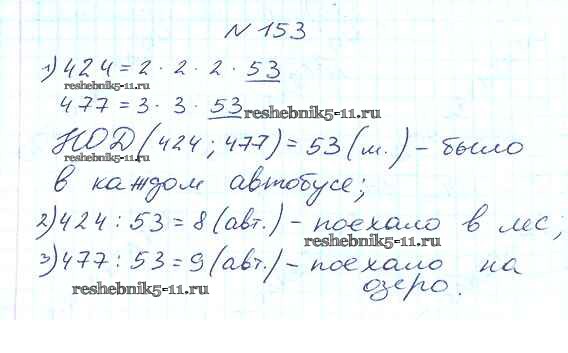 N 153
1) 424 = 2 · 2 · 2 · 53
reshebnik5-11.ru
477 = 3 · 3 · 53
reshebnik5-11.ru
НОД (424 ; 477) = 53 (м.) – было
reshebnik5-11.ru
в каждом автобусе;
2) 424 : 53 = 8 (авт.) – поехало в лес;
reshebnik5-11.ru
3) 477 : 53 = 9 (авт.) – поехало на
озеро.
reshebnik5-11.ru